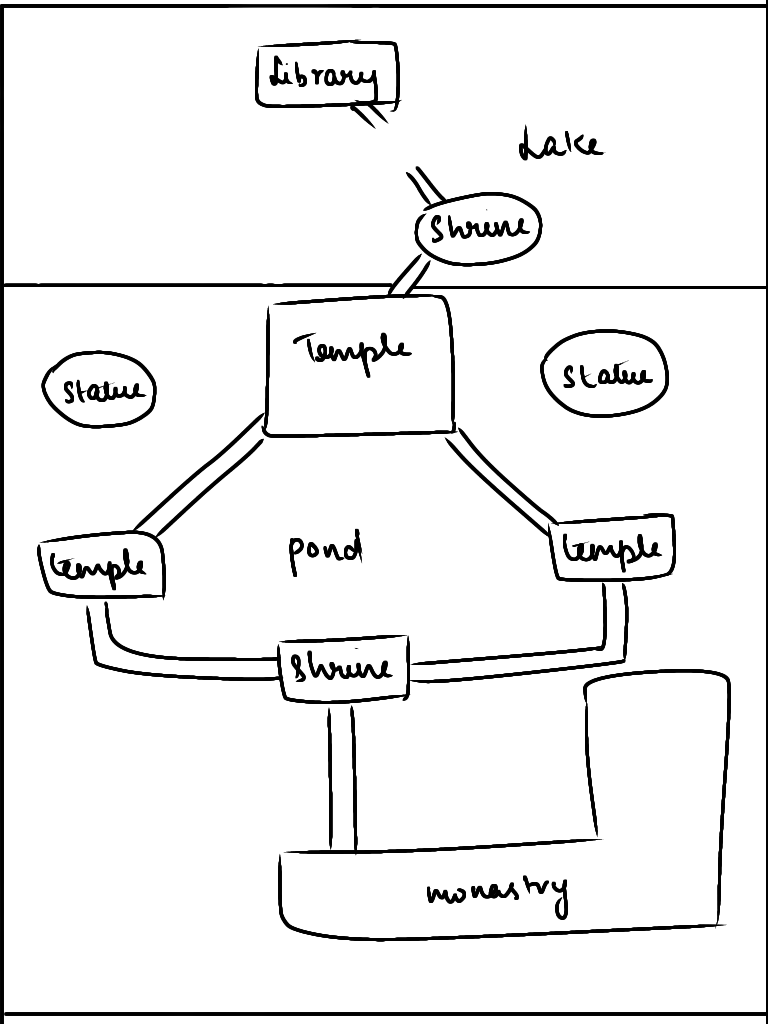 Library
Lake
Shrine
Temple
Statue
Statue
temple
pond
temple
Shrine
monastry